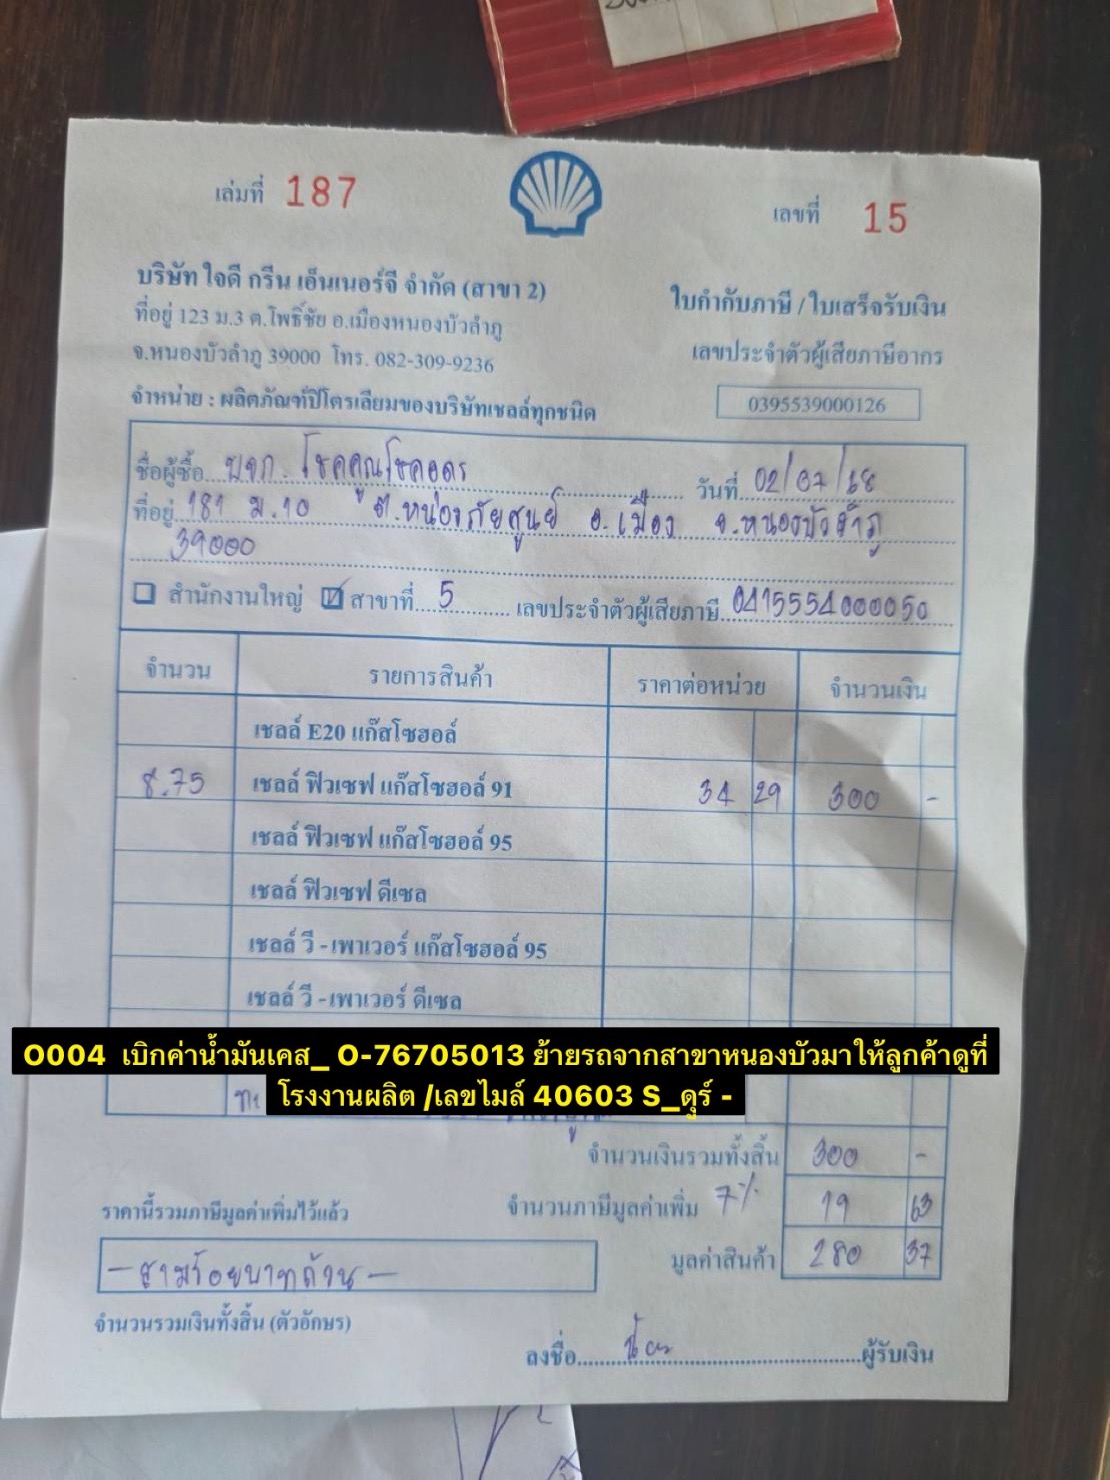 เล่มที่ 187
เลขที่ 15
บริษัท ใจดี กรีน เอ็นเนอร์จี จำกัด (สาขา 2)
ที่อยู่ 123 ม.3 ต.โพธิ์ชัย อ.เมืองหนองบัวลำภู
จ.หนองบัวลำภู 39000 โทร. 082-309-9236
จำหน่าย : ผลิตภัณฑ์ปิโตรเลียมของบริษัทเชลล์ทุกชนิด
ใบกำกับภาษี / ใบเสร็จรับเงิน
เลขประจำตัวผู้เสียภาษีอากร
0395539000126
ชื่อผู้ซื้อ บจก. โชคคูณโชคอดร วันที่ 02/07/68
ที่อยู่ 181 ม.10 ต.หนองภัยศูนย์ อ.เมือง จ.หนองบัวลำภู
39000
สำนักงานใหญ่ สาขาที่ 5 เลขประจำตัวผู้เสียภาษี 0415554000050
จำนวน รายการสินค้า ราคาต่อหน่วย จำนวนเงิน
เชลล์ E20 แก๊สโซฮอล์
8.75 เชลล์ ฟิวเซฟ แก๊สโซฮอล์ 91 34 29 300 -
เชลล์ ฟิวเซฟ แก๊สโซฮอล์ 95
เชลล์ ฟิวเซฟ ดีเซล
เชลล์ วี - เพาเวอร์ แก๊สโซฮอล์ 95
เชลล์ วี - เพาเวอร์ ดีเซล
O004 เบิกค่าน้ำมันเคส_ O-76705013 ย้ายรถจากสาขาหนองบัวมาให้ลูกค้าดูที่
โรงงานผลิต /เลขไมล์ 40603 S_ดุร์ -
จำนวนเงินรวมทั้งสิ้น 300 -
ราคานี้รวมภาษีมูลค่าเพิ่มไว้แล้ว จำนวนภาษีมูลค่าเพิ่ม 7% 19 63
มูลค่าสินค้า 280 37
- สามร้อยบาทถ้วน -
จำนวนรวมเงินทั้งสิ้น (ตัวอักษร)
ลงชื่อ ผู้รับเงิน